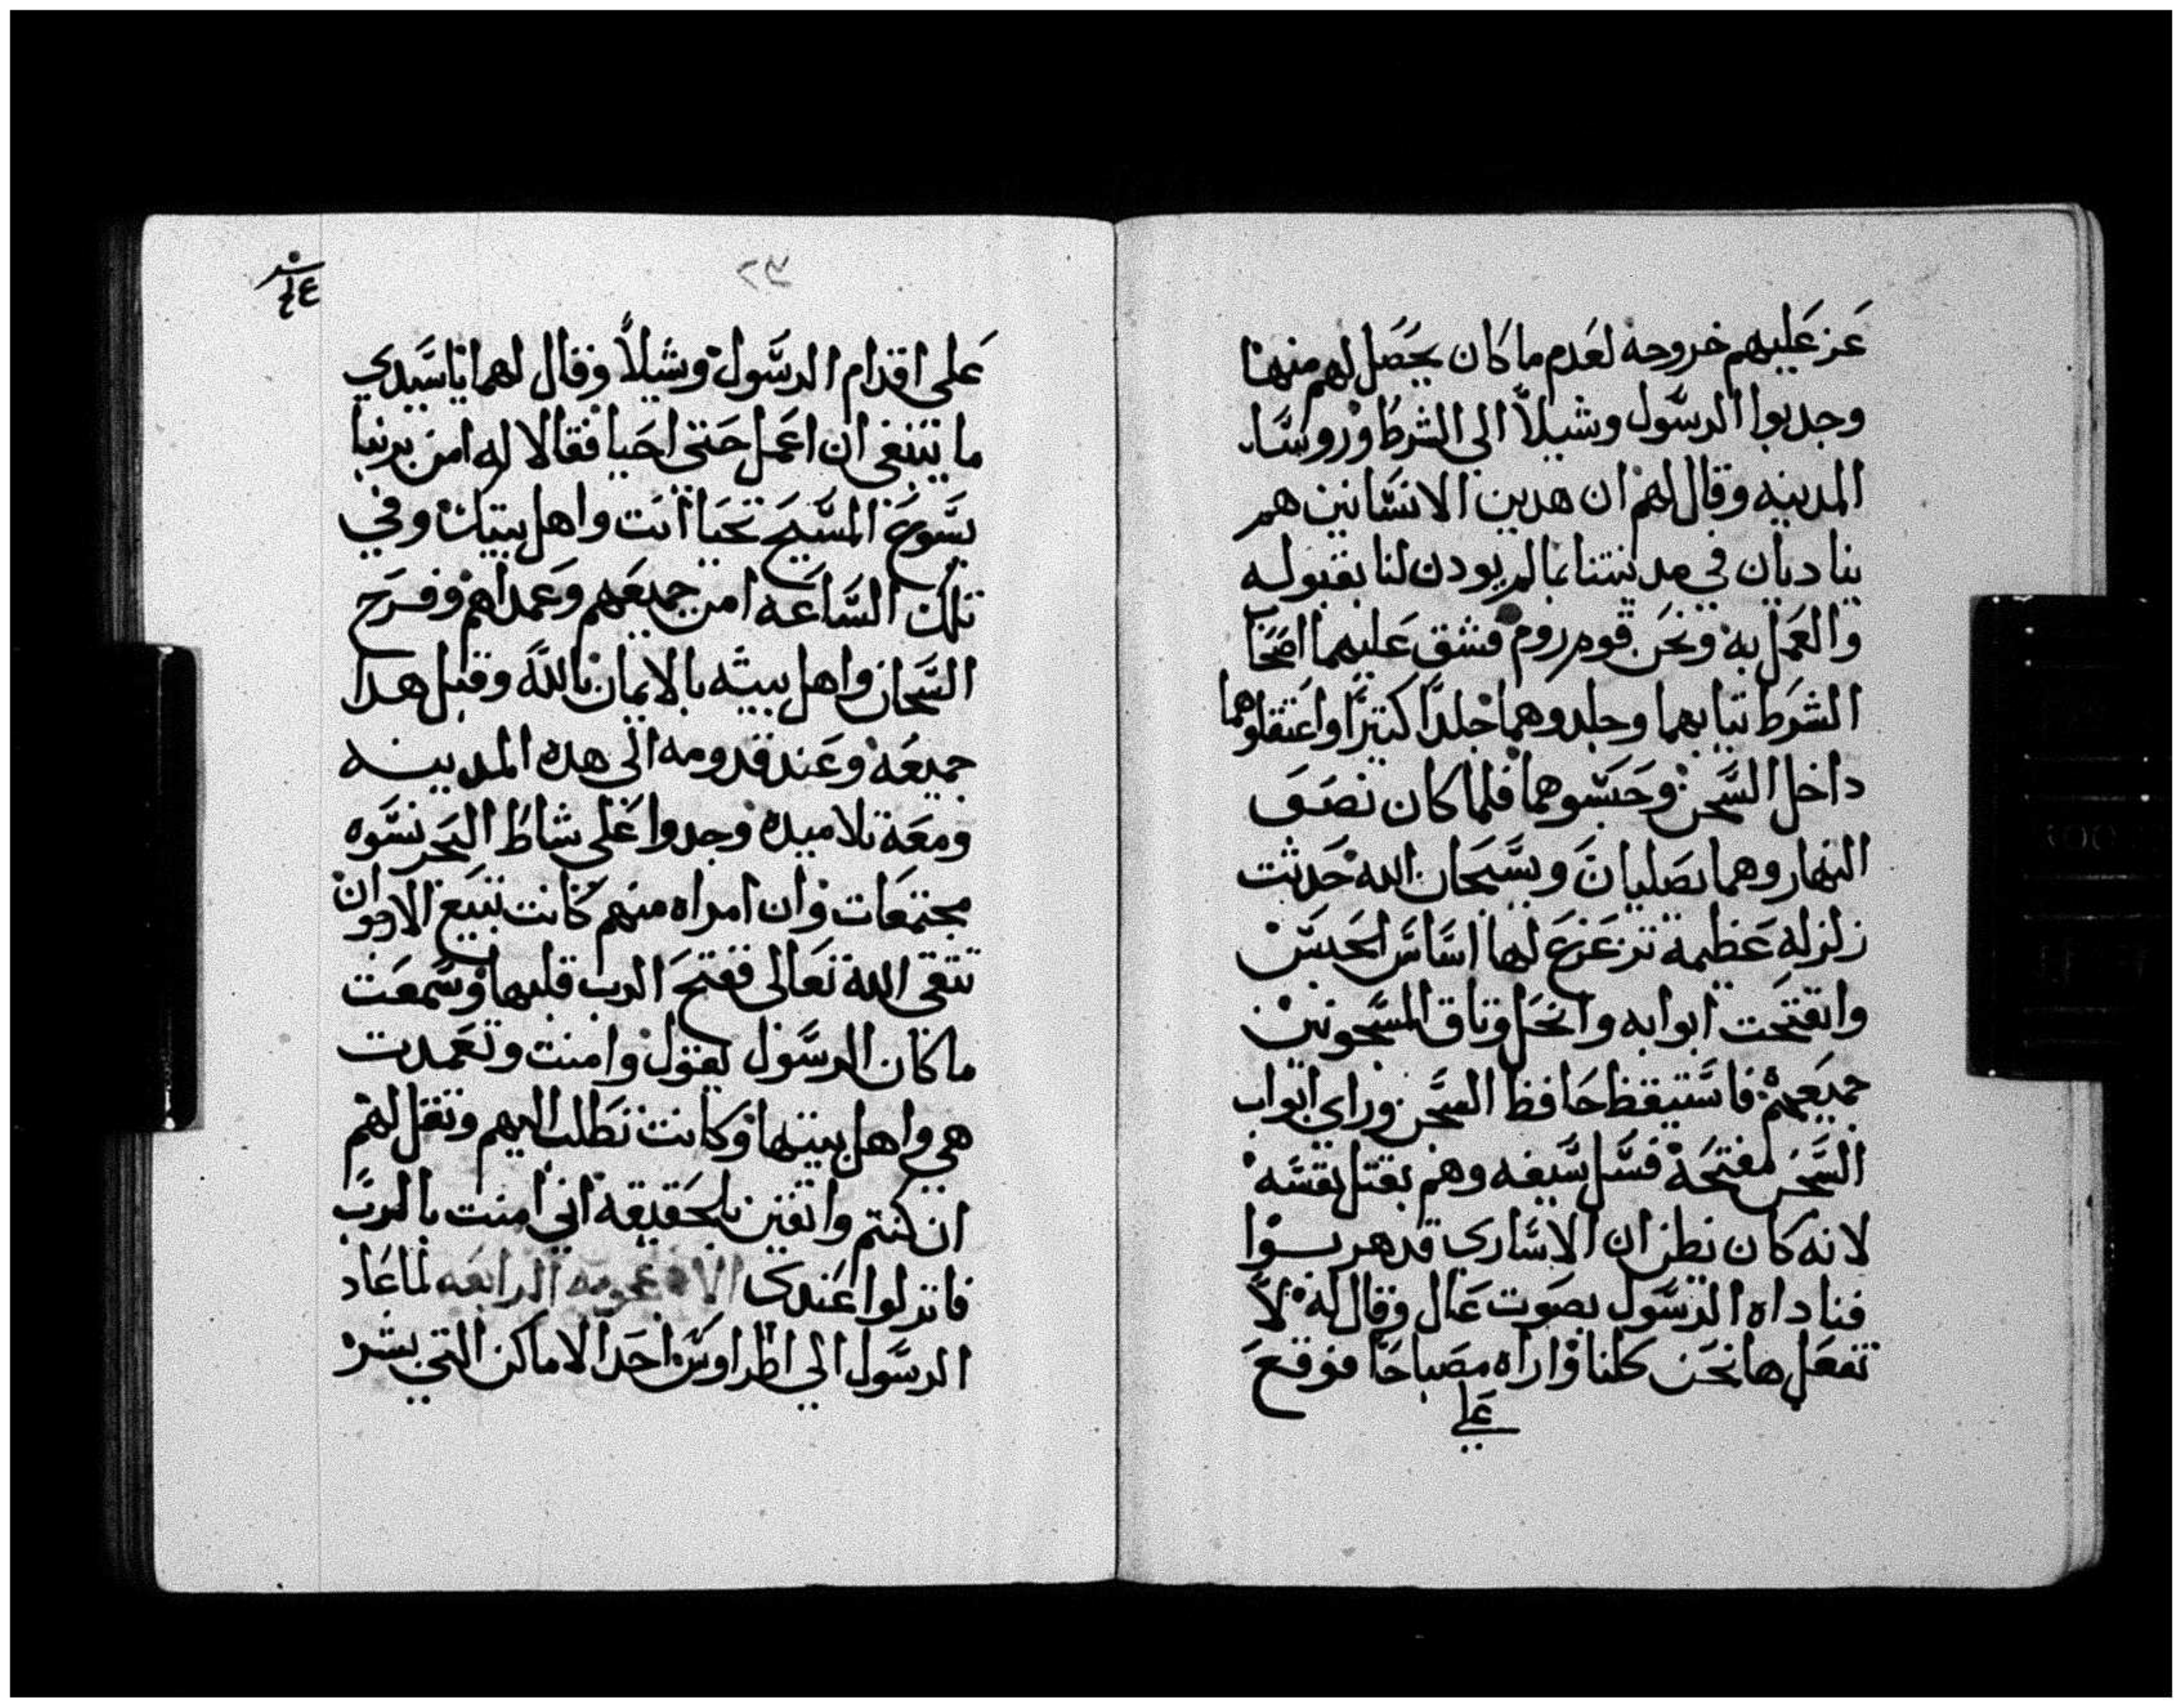 عز عليهم خروجه لعدم ما كان يحصل لهم منها
وجدبوا الرسول وشيلا الي الشرط وروسا
المدينه وقال لهم ان هدين الانسانين هم
يناديان في مدينتنا بما لم يودن لنا بقبوله
والعمل به ونحن قوم روم فشق عليهما اصحاب
الشرط تيابهما وجلدوهما جلدا كتيرا واعتقلوهما
داخل السجن وحبسوهما فلما كان نصف
النهار وهما يصليان ويسبحان الله حدثت
زلزله عظيمه تزعزع لها اساس الحبس
وانفتحت ابوابه وانحل وتاق المسجونين
جميعهم فاستيقظ حافظ السجن وراي ابواب
السجن مفتحة فسل سيفه وهم بقتل نفسه
لانه كان يظن ان الاساري قد هربوا
فناداه الرسول بصوت عال وقال له لا
تفعل ها نحن كلنا واراه مصباحا فوقع
علي
٢٣
على اقدام الرسول وشيلا وقال لهما يا سيدي
ما ينبغي ان اعمل حتى احيا فقالا له امن بربنا
يسوع المسيح تحيا انت واهل بيتك وفي
تلك الساعه امن جميعهم وعمداهم وفرح
السجان واهل بيته بالايمان بالله وقبل هدا
جميعه وعند قدومه الى هده المدينه
ومعه تلاميده وجدوا على شاط البحر نسوه
مجتمعات وان امراه منهم كانت تبيع الارجوان
تتقي الله تعالى ففتح الرب قلبها وسمعت
ما كان الرسول يقول وامنت وتعمدت
هي واهل بيتها وكانت تطلب اليهم وتقل لهم
ان كنتم واتقين بالحقيقه اني امنت بالرب
فانزلوا عندي الرابعه لما عاد
الرسول الي اطراوس احد الاماكن التي بشر